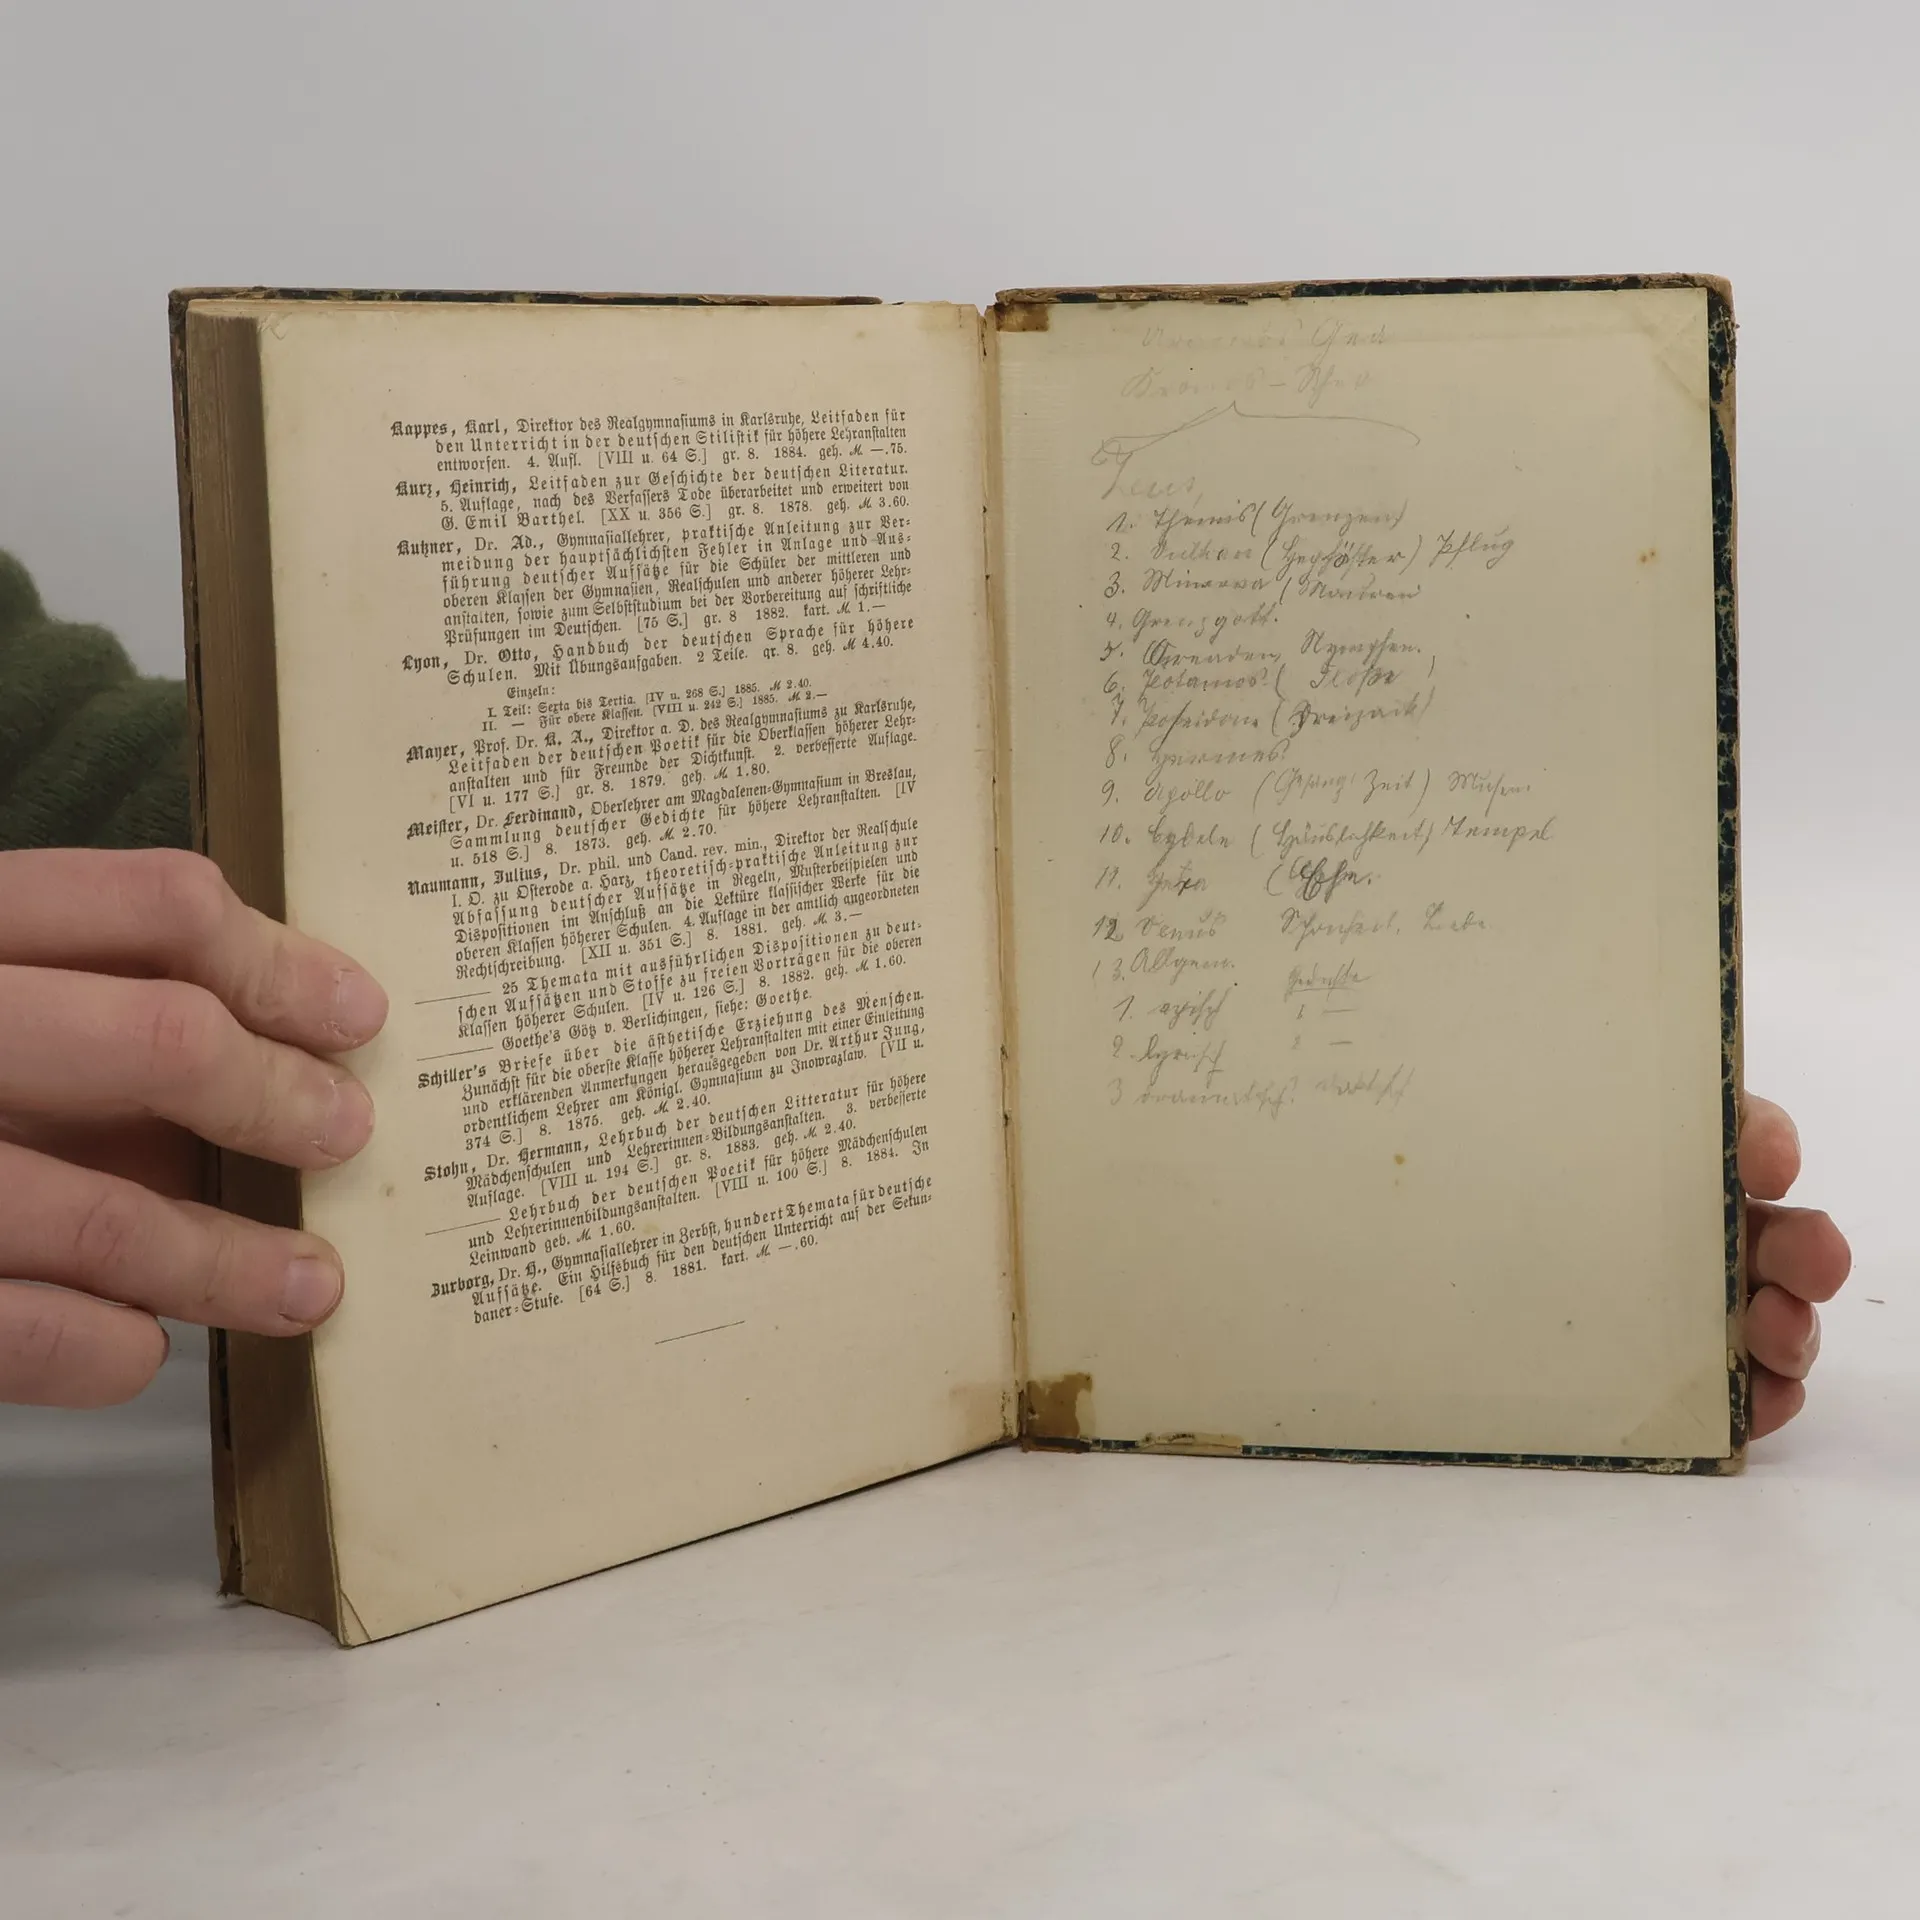 Kappes, Karl, Direktor des Realgymnasiums in Karlsruhe, Leitfaden für
den Unterricht in der deutschen Stilistik für höhere Lehranstalten
entworfen. 4. Aufl. [VIII u. 64 S.] gr. 8. 1884. geh. M. —.75.
Kurz, Heinrich, Leitfaden zur Geschichte der deutschen Literatur.
5. Auflage, nach des Verfassers Tode überarbeitet und erweitert von
G. Emil Barthel. [XX u. 356 S.] gr. 8. 1878. geh. M. 3.60.
Kutzner, Dr. Ad., Gymnasiallehrer, praktische Anleitung zur Ver-
meidung der hauptsächlichsten Fehler in Anlage und Aus-
führung deutscher Aufsätze für die Schüler der mittleren und
oberen Klassen der Gymnasien, Realschulen und anderer höherer Lehr-
anstalten, sowie zum Selbststudium bei der Vorbereitung auf schriftliche
Prüfungen im Deutschen. [75 S.] gr. 8 1882. kart. M. 1.—
Lyon, Dr. Otto, Handbuch der deutschen Sprache für höhere
Schulen. Mit Übungsaufgaben. 2 Teile. gr. 8. geh. M 4.40.
Einzeln:
I. Teil: Sexta bis Tertia. [IV u. 268 S.] 1885. M 2.40.
II. — Für obere Klassen. [VIII u. 242 S.] 1885. M. 2.—
Mayer, Prof. Dr. K. A., Direktor a. D. des Realgymnasiums zu Karlsruhe,
Leitfaden der deutschen Poetik für die Oberklassen höherer Lehr-
anstalten und für Freunde der Dichtkunst. 2. verbesserte Auflage.
[VI u. 177 S.] gr. 8. 1879. geh. M. 1.80.
Meister, Dr. Ferdinand, Oberlehrer am Magdalenen-Gymnasium in Breslau,
Sammlung deutscher Gedichte für höhere Lehranstalten. [IV
u. 518 S.] 8. 1873. geh. M. 2.70.
Naumann, Julius, Dr. phil. und Cand. rev. min., Direktor der Realschule
I. O. zu Osterode a. Harz, theoretisch-praktische Anleitung zur
Abfassung deutscher Aufsätze in Regeln, Musterbeispielen und
Dispositionen im Anschluß an die Lektüre klassischer Werke für die
oberen Klassen höherer Schulen. 4. Auflage in der amtlich angeordneten
Rechtschreibung. [XII u. 351 S.] 8. 1881. geh. M. 3.—
——— 25 Themata mit ausführlichen Dispositionen zu deut-
schen Aufsätzen und Stoffe zu freien Vorträgen für die oberen
Klassen höherer Schulen. [IV u. 126 S.] 8. 1882. geh. M. 1.60.
——— Goethe's Götz v. Berlichingen, siehe: Goethe.
Schiller's Briefe über die ästhetische Erziehung des Menschen.
Zunächst für die oberste Klasse höherer Lehranstalten mit einer Einleitung
und erklärenden Anmerkungen herausgegeben von Dr. Arthur Jung,
ordentlichem Lehrer am Königl. Gymnasium zu Inowrazlaw. [VII u.
374 S.] 8. 1875. geh. M. 2.40.
Stohn, Dr. Hermann, Lehrbuch der deutschen Litteratur für höhere
Mädchenschulen und Lehrerinnen-Bildungsanstalten. 3. verbesserte
Auflage. [VIII u. 194 S.] gr. 8. 1883. geh. M. 2.40.
——— Lehrbuch der deutschen Poetik für höhere Mädchenschulen
und Lehrerinnenbildungsanstalten. [VIII u. 100 S.] 8. 1884. In
Leinwand geb. M. 1.60.
Zurborg, Dr. H., Gymnasiallehrer in Zerbst, hundert Themata für deutsche
Aufsätze. Ein Hilfsbuch für den deutschen Unterricht auf der Sekun-
daner-Stufe. [64 S.] 8. 1881. kart. M. —.60.
Kronos – Rhea
Zeus
1. Themis (Grenzen)
2. Vulkan (Hephäster) Pflug
3. Minerva
4. Grenzgott.
5. Nymphen.
6. Potamos
7. Poseidon (Dreizack)
8. Hermes
9. Apollo (Gesang, Zeit) Musen
10. Cybele (Häuslichkeit) Tempel
11. (Ehe.
12. Venus Schönheit, Liebe
13. Allgem.
1. episch 1 —
2. lyrisch 2 —
3 dramatisch